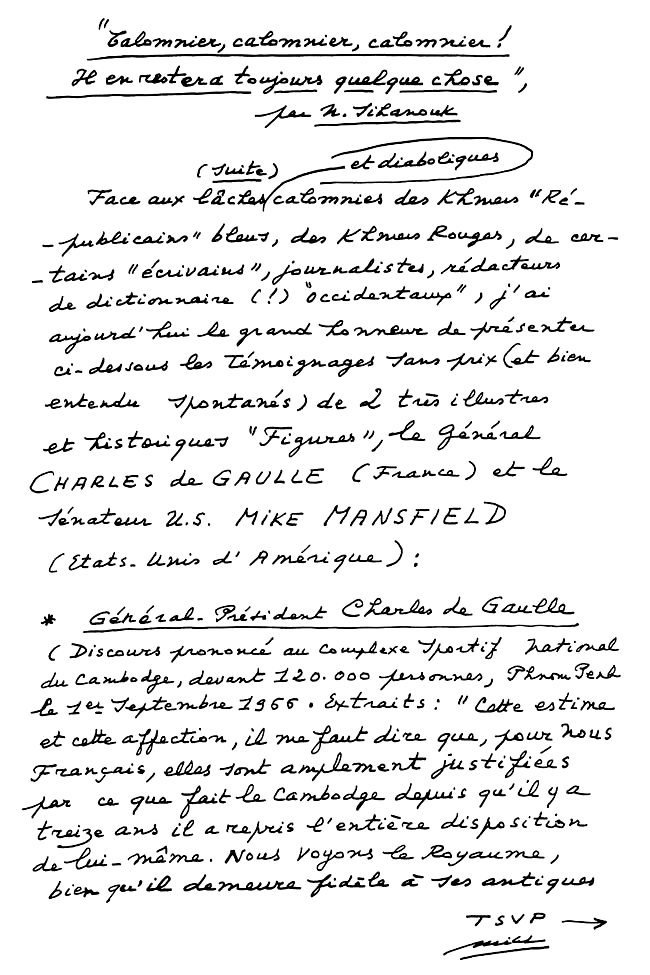 "Calomnier, calomnier, calomnier!
Il en restera toujours quelque chose",
par N. Sihanouk
(suite)
et diaboliques
Face aux lâches calomnies des Khmers "Ré-
-publicains" bleus, des Khmers Rouges, de cer-
-tains "écrivains", journalistes, rédacteurs
de dictionnaire (!) "occidentaux", j'ai
aujourd'hui le grand honneur de présenter
ci-dessous les Témoignages sans prix (et bien
entendu spontanés) de 2 très illustres
et historiques "Figures", le Général
CHARLES de GAULLE (France) et le
Sénateur U.S. MIKE MANSFIELD
(Etats-Unis d'Amérique) :
* Général-Président Charles de Gaulle
(Discours prononcé au complexe Sportif National
du Cambodge, devant 120.000 personnes, Phnom Penh
le 1er Septembre 1966. Extraits : "Cette estime
et cette affection, il me faut dire que, pour nous
Français, elles sont amplement justifiées
par ce que fait le Cambodge depuis qu'il y a
treize ans il a repris l'entière disposition
de lui-même. Nous voyons le Royaume,
bien qu'il demeure fidèle à ses antiques
TSVP →